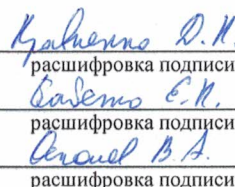 Кравченко Д. И.
расшифровка подписи
Бабенко Е. И.
расшифровка подписи
В. А.
расшифровка подписи